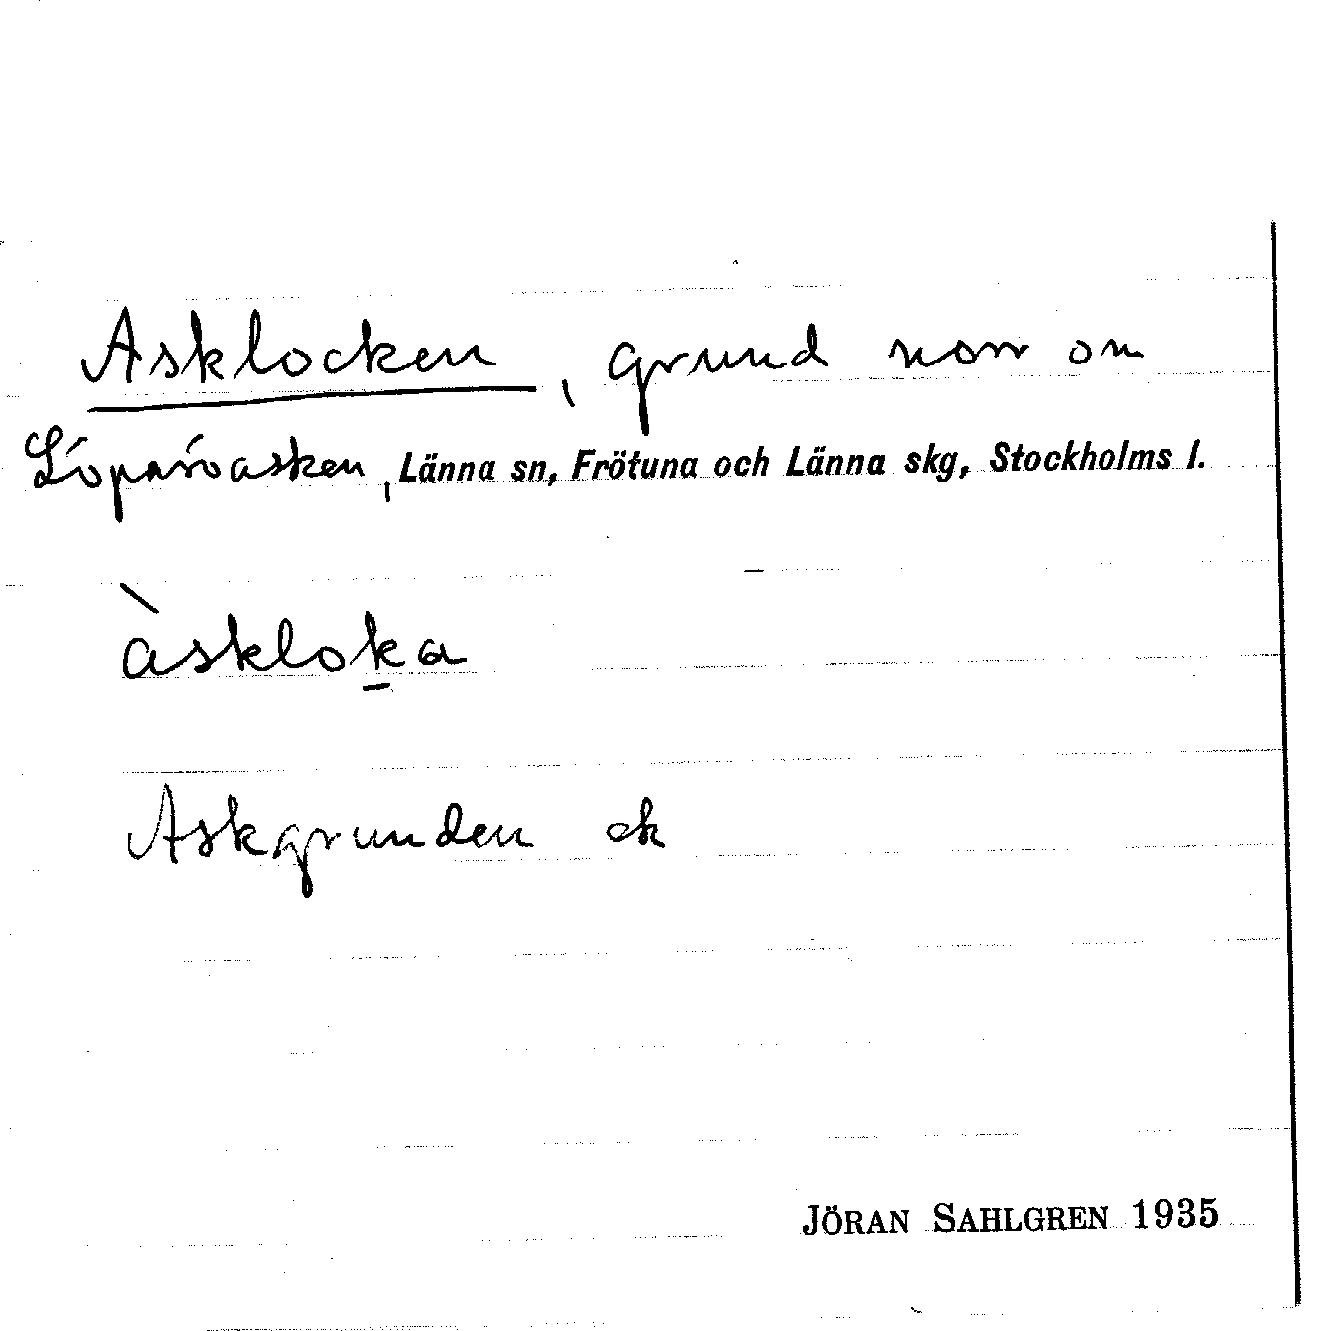 Asklocken, grund norr om
Löparöasken, Länna sn, Frötuna och Länna skg, Stockholms l.
àskloḵa
Askgrunden ek
JÖRAN SAHLGREN 1935